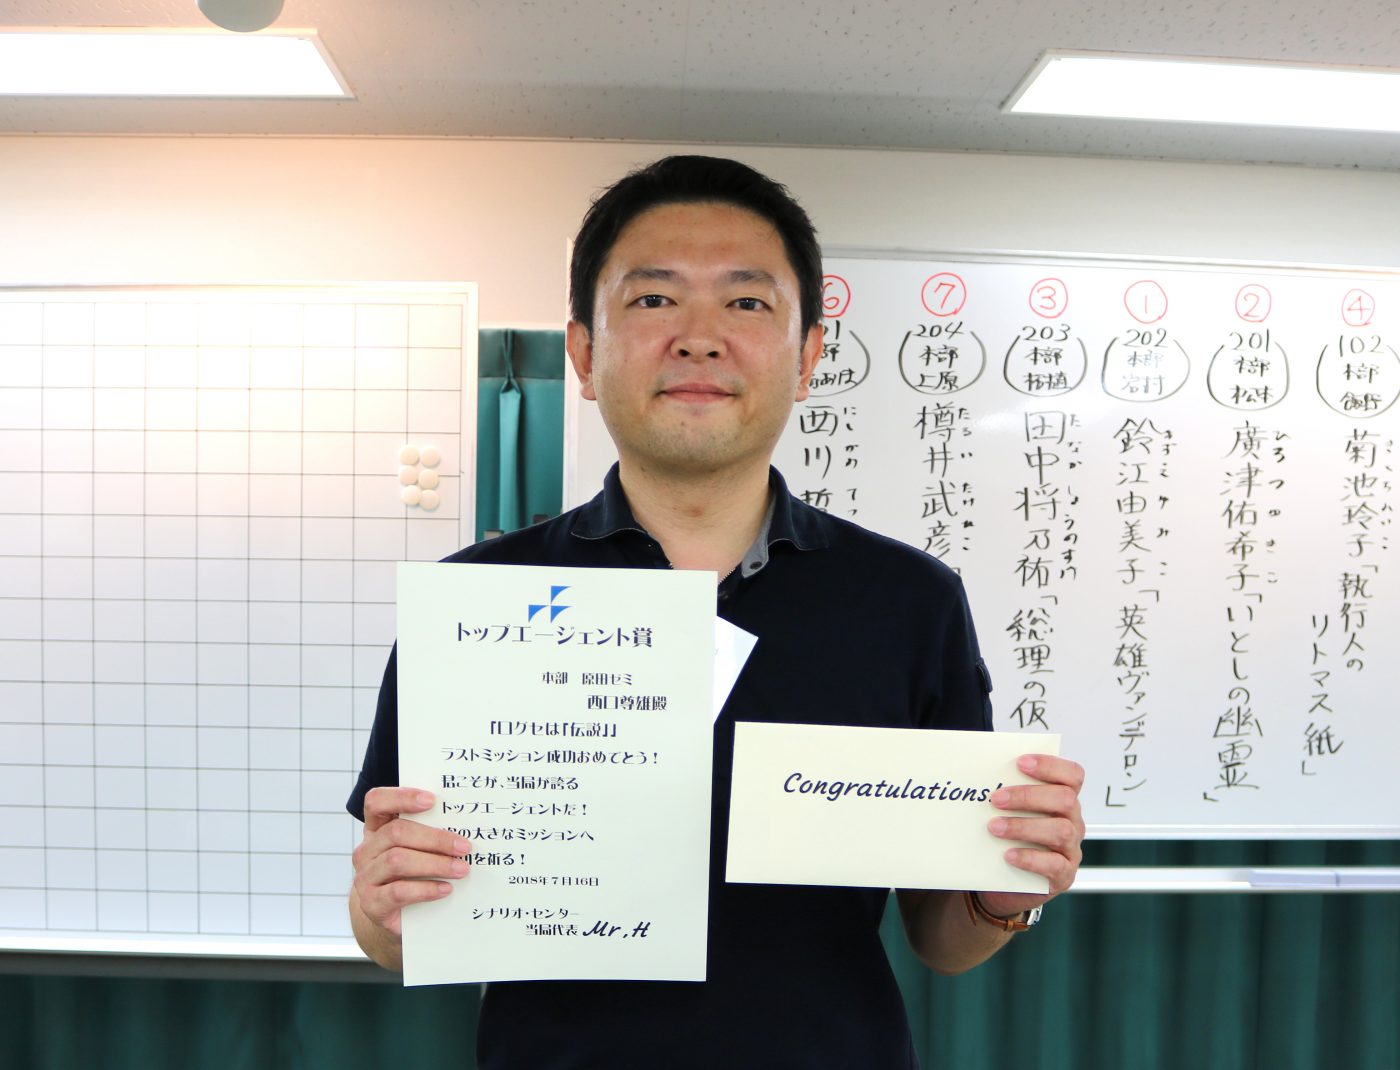 トップエージェント賞
本部 原田ゼミ
西口尊雄殿
「口グセは「伝説」」
ラストミッション成功おめでとう！
君こそが、当局が誇る
トップエージェントだ！
の大きなミッションへ
を祈る！
2018年7月16日
シナリオ・センター
当局代表 Mr.H
Congratulations!
④
102
本部
飯野
菊池玲子「執行人の
リトマス紙」
②
201
本部
松本
ひろつゆきこ
廣津佑希子「いとしの幽霊」
①
202
本部
岩村
すずえゆみこ
鈴江由美子「英雄ヴァンデロン」
③
203
本部
柘植
たなかしょうのすけ
田中将乃祐「総理の仮
⑦
204
本部
上原
たるいたけひこ
樽井武彦「
⑥
にしかわてつ
西川哲